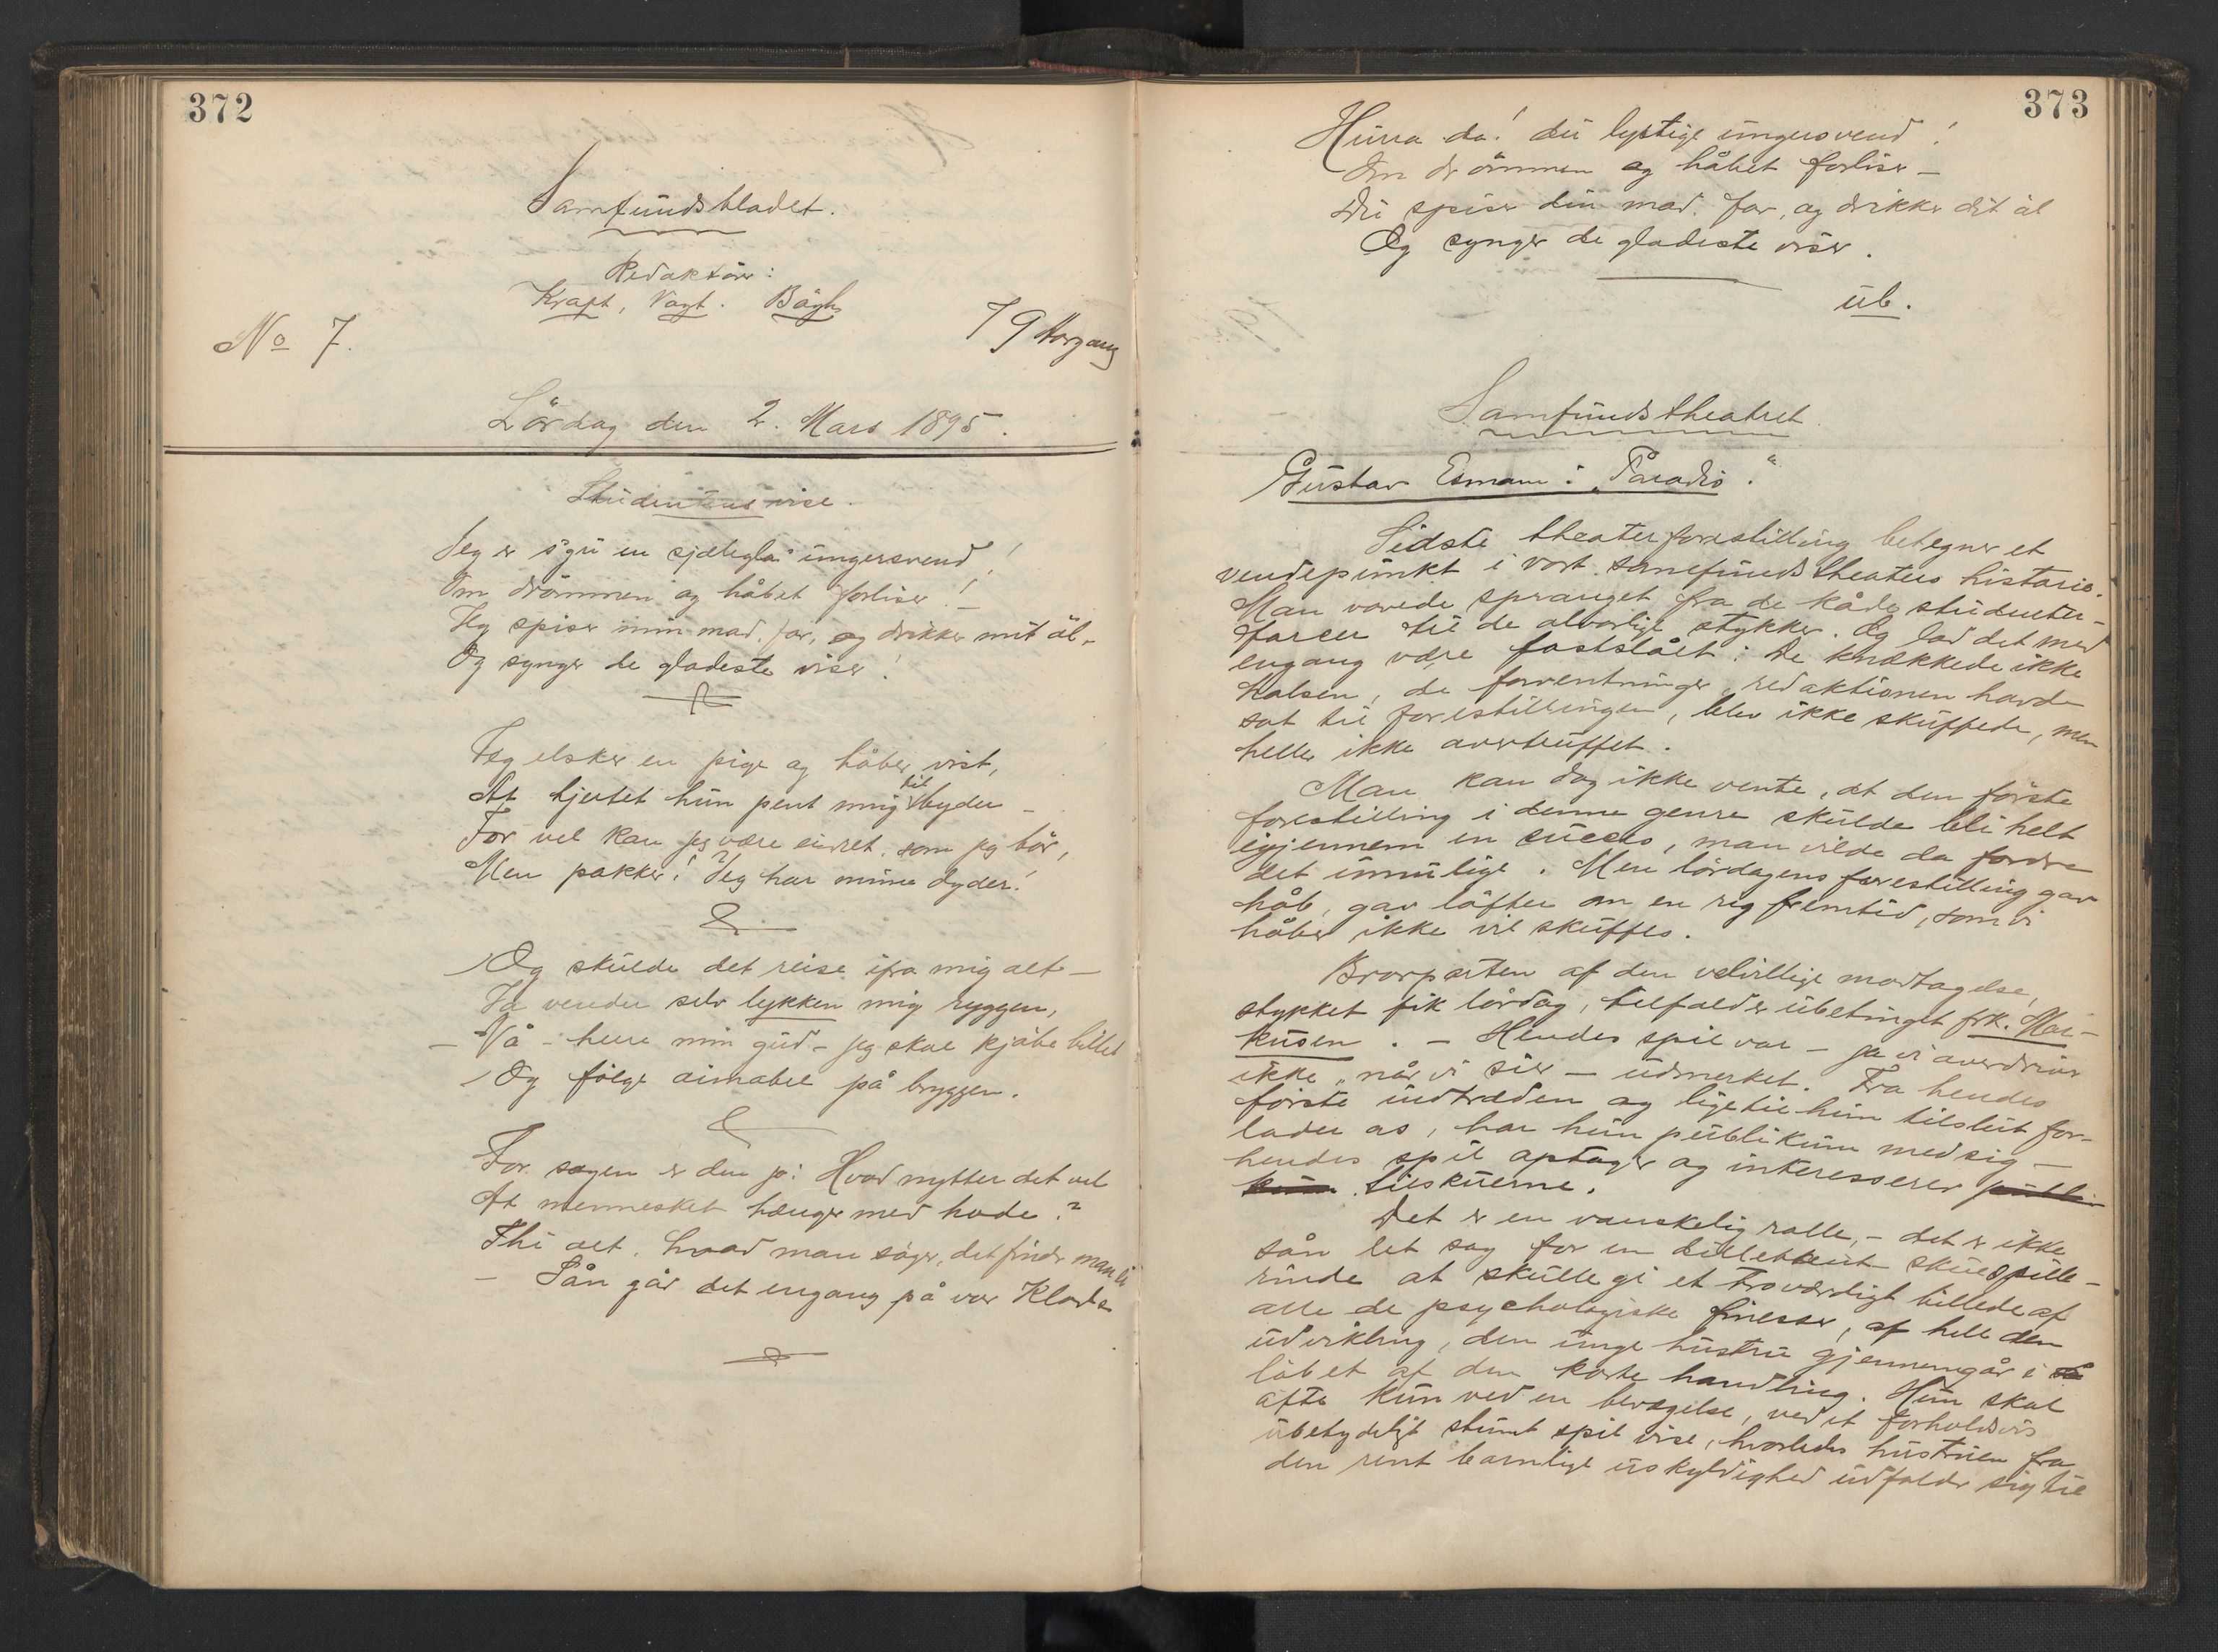 372
Samfundsbladet.
Redaktører:
Kraft, Vogt. Bøgh
No 7.
19 Aargang
Lördag den 2. Mars 1895.
Studentens vise.
Jeg er s'gu en sjæleglad ungersvend!
Om drömmen og håbet forliser! –
Jeg spiser min mad, far, og drikker mit öl –
Og synger de gladeste viser!
Jeg elsker en pige og håber vist,
At hjertet hun pent mig tilbyder –
For vel kan jeg være ens'et som jeg bör,
Men pokker! Jeg har mine dyder!
Og skulde det reise ifra mig alt –
Ja vender selv lykken mig ryggen,
– Nå – herre min gud – jeg skal kjøbe billet
Og følge aimabel på bryggen.
For sagen er den jo: Hvad nytter det vel
At mennesket hænger med hode?
Thi alt, hvad man søger, det finder man ei
– Sån går det engang på vor Klode
373
Hurra da! du lystige ungersvend!
Om drömmen og håbet forliser –
Du spiser din mad, far, og drikker dit öl
Og synger de gladeste viser.
ub.
Samfundstheatret
Gustav Esmann: „Paradis".
Sidste theaterforestilling betegner et
vendepunkt i vort samfundstheaters historie.
Man vovede spranget fra de kåde studenter-
farcer til de alvorlige stykker. Og lad det med
engang være fastslået: De knækkede ikke
halsen, de forventninger redaktionen havde
sat til forestillingen, blev ikke skuffede, men
heller ikke overtruffet.
Man kan dog ikke vente, at den første
forestilling i denne genre skulde bli helt
igjennem en succes, man vilde da fordre
det umulige. Men lördagens forestilling gav
håb, gav løfter om en rig fremtid, som vi
håber ikke vil skuffes.
Brorparten af den velvillige modtagelse,
stykket fik lördag, tilfalder ubetinget frk. Mar-
kusen. – Hendes spil var – ja vi overdriver
ikke, når vi sier – udmerket. Fra hendes
første indtræden og lige til hun tilslut for-
lader os, har hun publikum med sig –
hendes spil optager og interesserer publi-
kum tilskuerne.
Det er en vanskelig rolle, – det er ikke
sån let sag for en dilletant skuespille-
rinde at skulle gi et troværdigt billede af
alle de psychologiske finesser, af hele den
udvikling, den unge hustru gjennemgår i
løbet af den korte handling. Hun skal
ofte kun ved en bevægelse, ved et forholdsvis
ubetydeligt stumt spil vise, hvorledes hustruen fra
den rent barnlige uskyldighed udfolder sig til